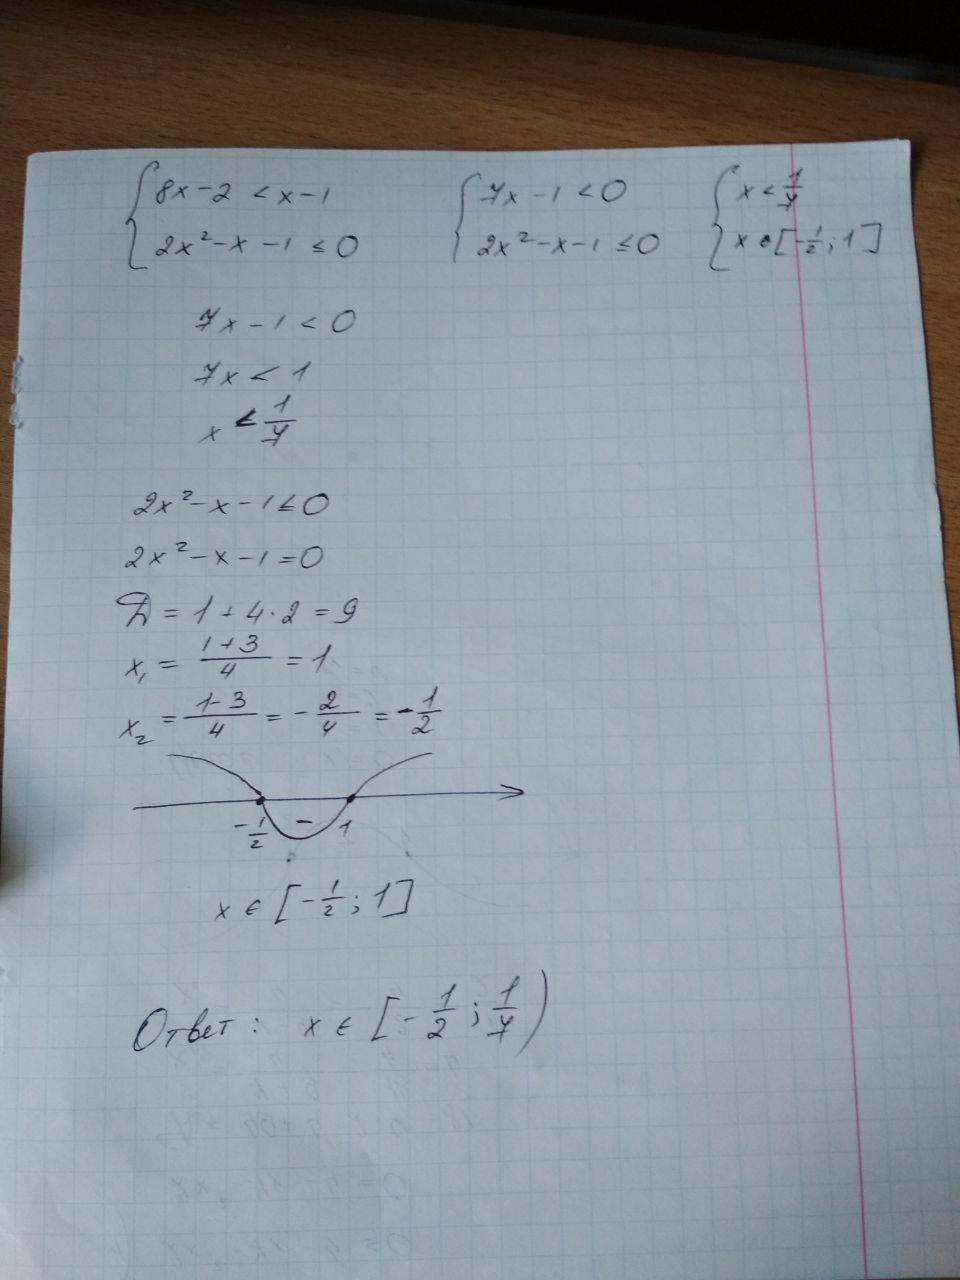 { 8x - 2 < x - 1 { 7x - 1 < 0 { x < 1/7
2x² - x - 1 ≤ 0 2x² - x - 1 ≤ 0 x ∈ [-1/2; 1]
7x - 1 < 0
7x < 1
x < 1/7
2x² - x - 1 ≤ 0
2x² - x - 1 = 0
Д = 1 + 4 · 2 = 9
x₁ = (1+3)/4 = 1
x₂ = (1-3)/4 = -2/4 = -1/2
-1/2 - 1
x ∈ [-1/2; 1]
Ответ: x ∈ [-1/2; 1/7)